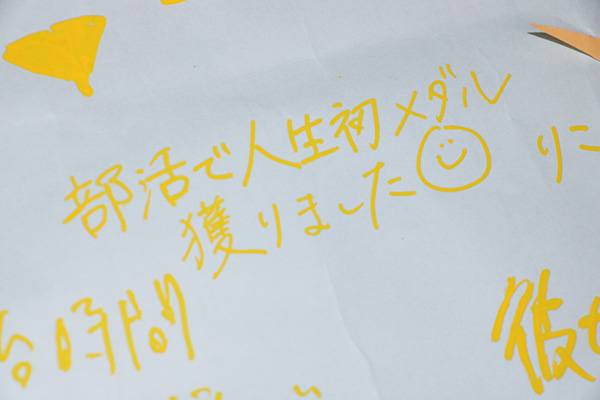 部活で人生初メダル
獲りました
りこ
時間
彼